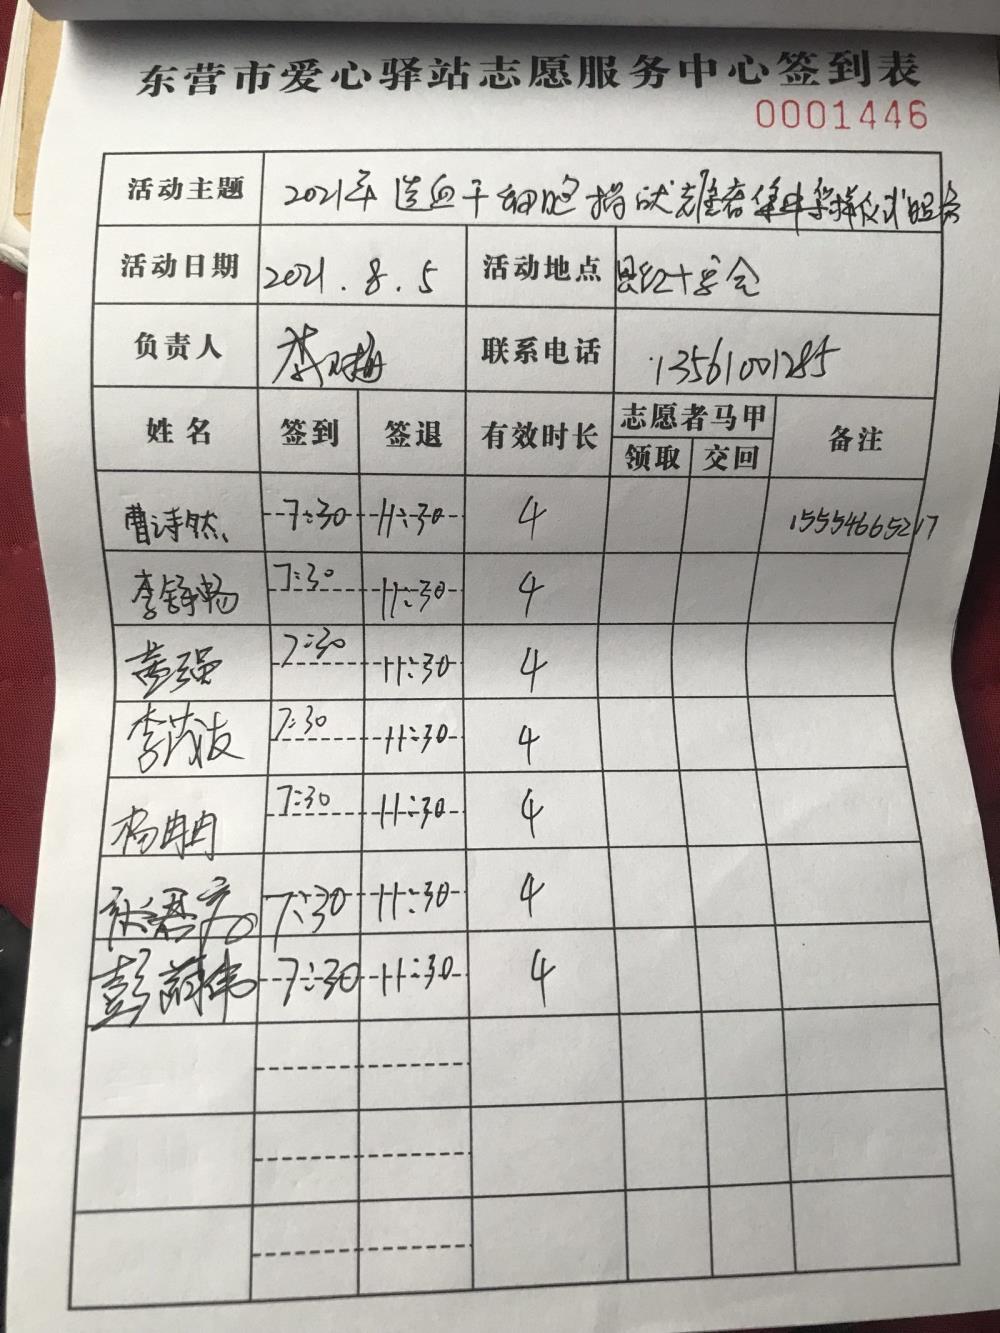 东营市爱心驿站志愿服务中心签到表
0001446
活动主题 2021年造血干细胞捐献志愿者集中采样仪式服务
活动日期 2021.8.5 活动地点 县红十字会
负责人 李 梅 联系电话 13561001285
姓名 签到 签退 有效时长 志愿者马甲 备注
领取 交回
曹诗然 7:30 11:30 4 15554665217
李舒畅 7:30 11:30 4
黄强 7:30 11:30 4
李茂友 7:30 11:30 4
杨冉冉 7:30 11:30 4
7:30 11:30 4
彭 伟 7:30 11:30 4